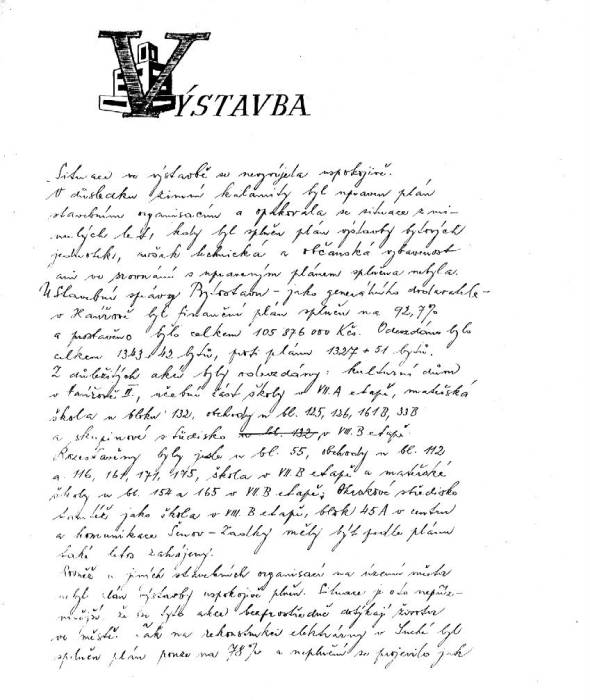 VÝSTAVBA
Situace ve výstavbě se nevyvíjela uspokojivě.
V důsledku zimní kalamity byl upraven plán
stavebním organisacím a opakovala se situace z mi-
nulých let, kdy byl splněn plán výstavby bytových
jednotek, avšak technická a občanská vybavenost
ani ve srovnání s upraveným plánem splněna nebyla.
U Stavební správy Bytostavu - jako generálního dodavatele -
v Havířově byl finanční plán splněn na 92,7%
a prostavěno bylo celkem 105 876 000 Kčs. Odevzdáno bylo
celkem 1343 + 42 bytů, proti plánu 1327 + 51 bytů.
Z důležitých akcí byly odevzdány: kulturní dům
v Havířově II., učební část školy v VII.A etapě, mateřská
škola u bloku 132, obchody u bl. 125, 136, 161B, 33B
a skupinové středisko u bl. 132, v VIII. B etapě.
byly jesle u bl. 55, obchody u bl. 112
a 116, 161, 171, 175, škola v VII.B etapě a mateřské
školy u bl. 152 a 165 v VII.B etapě; Obvodové středisko
jako škola v VIII. B etapě, blok 45A v centru
a komunikace Šenov - měly být podle plánu
také letos zahájeny.
Rovněž u jiných stavebních organisací na území města
nebyl plán výstavby uspokojivě plněn. Situace je o to nepříz-
nivější že se tyto akce bezprostředně dotýkají života
ve městě. Tak na rekonstrukci elektrárny v Suché byl
splněn plán pouze na 78% a neplnění se projevilo jak